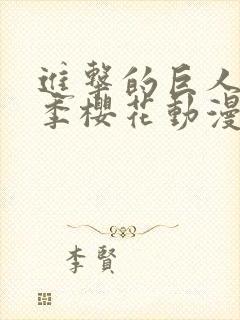 進擊的巨人
季櫻花動漫
李賢